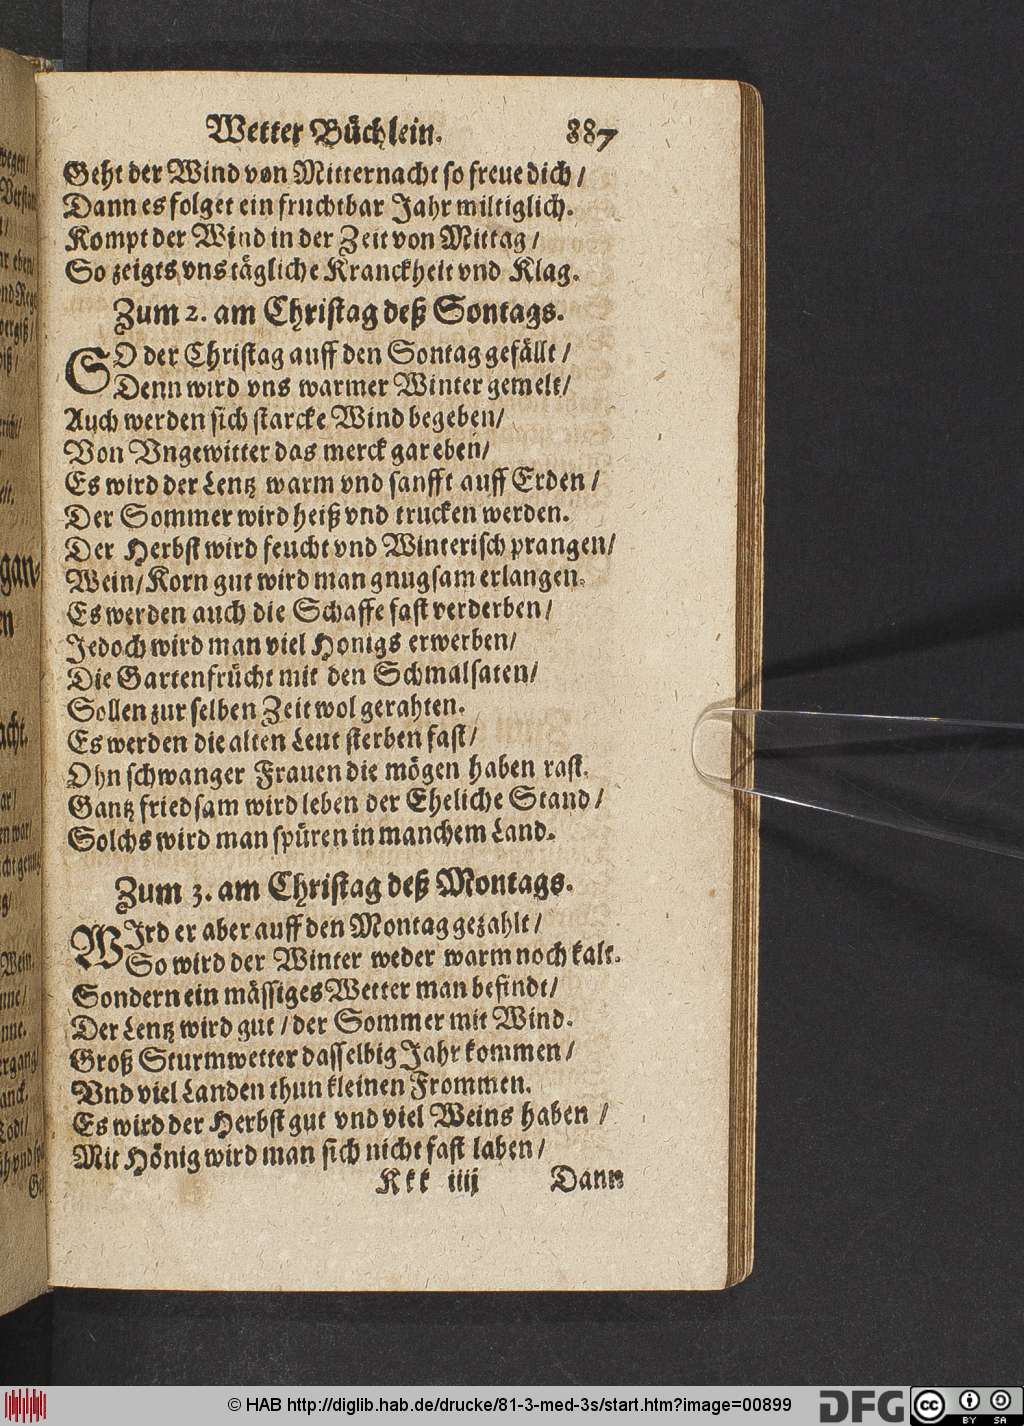 Wetter Büchlein. 887
Geht der Wind von Mitternacht so freue dich /
Dann es folget ein fruchtbar Jahr miltiglich.
Kompt der Wind in der Zeit von Mittag /
So zeigts vns tägliche Kranckheit vnd Klag.
Zum 2. am Christag deß Sontags.
SO der Christag auff den Sontag gefällt /
Denn wird vns warmer Winter gemelt /
Auch werden sich starcke Wind begeben /
Von Vngewitter das merck gar eben /
Es wird der Lentz warm vnd sanfft auff Erden /
Der Sommer wird heiß vnd trucken werden.
Der Herbst wird feucht vnd Winterisch prangen /
Wein / Korn gut wird man gnugsam erlangen.
Es werden auch die Schaffe fast verderben /
Jedoch wird man viel Honigs erwerben /
Die Gartenfrücht mit den Schmalsaten /
Sollen zur selben Zeit wol gerahten.
Es werden die alten Leut sterben fast /
Ohn schwanger Frauen die mögen haben rast.
Gantz friedsam wird leben der Eheliche Stand /
Solchs wird man spüren in manchem Land.
Zum 3. am Christag deß Montags.
WIrd er aber auff den Montag gezahlt /
So wird der Winter weder warm noch kalt.
Sondern ein mässiges Wetter man befindt /
Der Lentz wird gut / der Sommer mit Wind.
Groß Sturmwetter dasselbig Jahr kommen /
Vnd viel Landen thun kleinen Frommen.
Es wird der Herbst gut vnd viel Weins haben /
Mit Hönig wird man sich nicht fast laben /
Kkk iiij Dann
© HAB http://diglib.hab.de/drucke/81-3-med-3s/start.htm?image=00899
DFG
cc BY SA